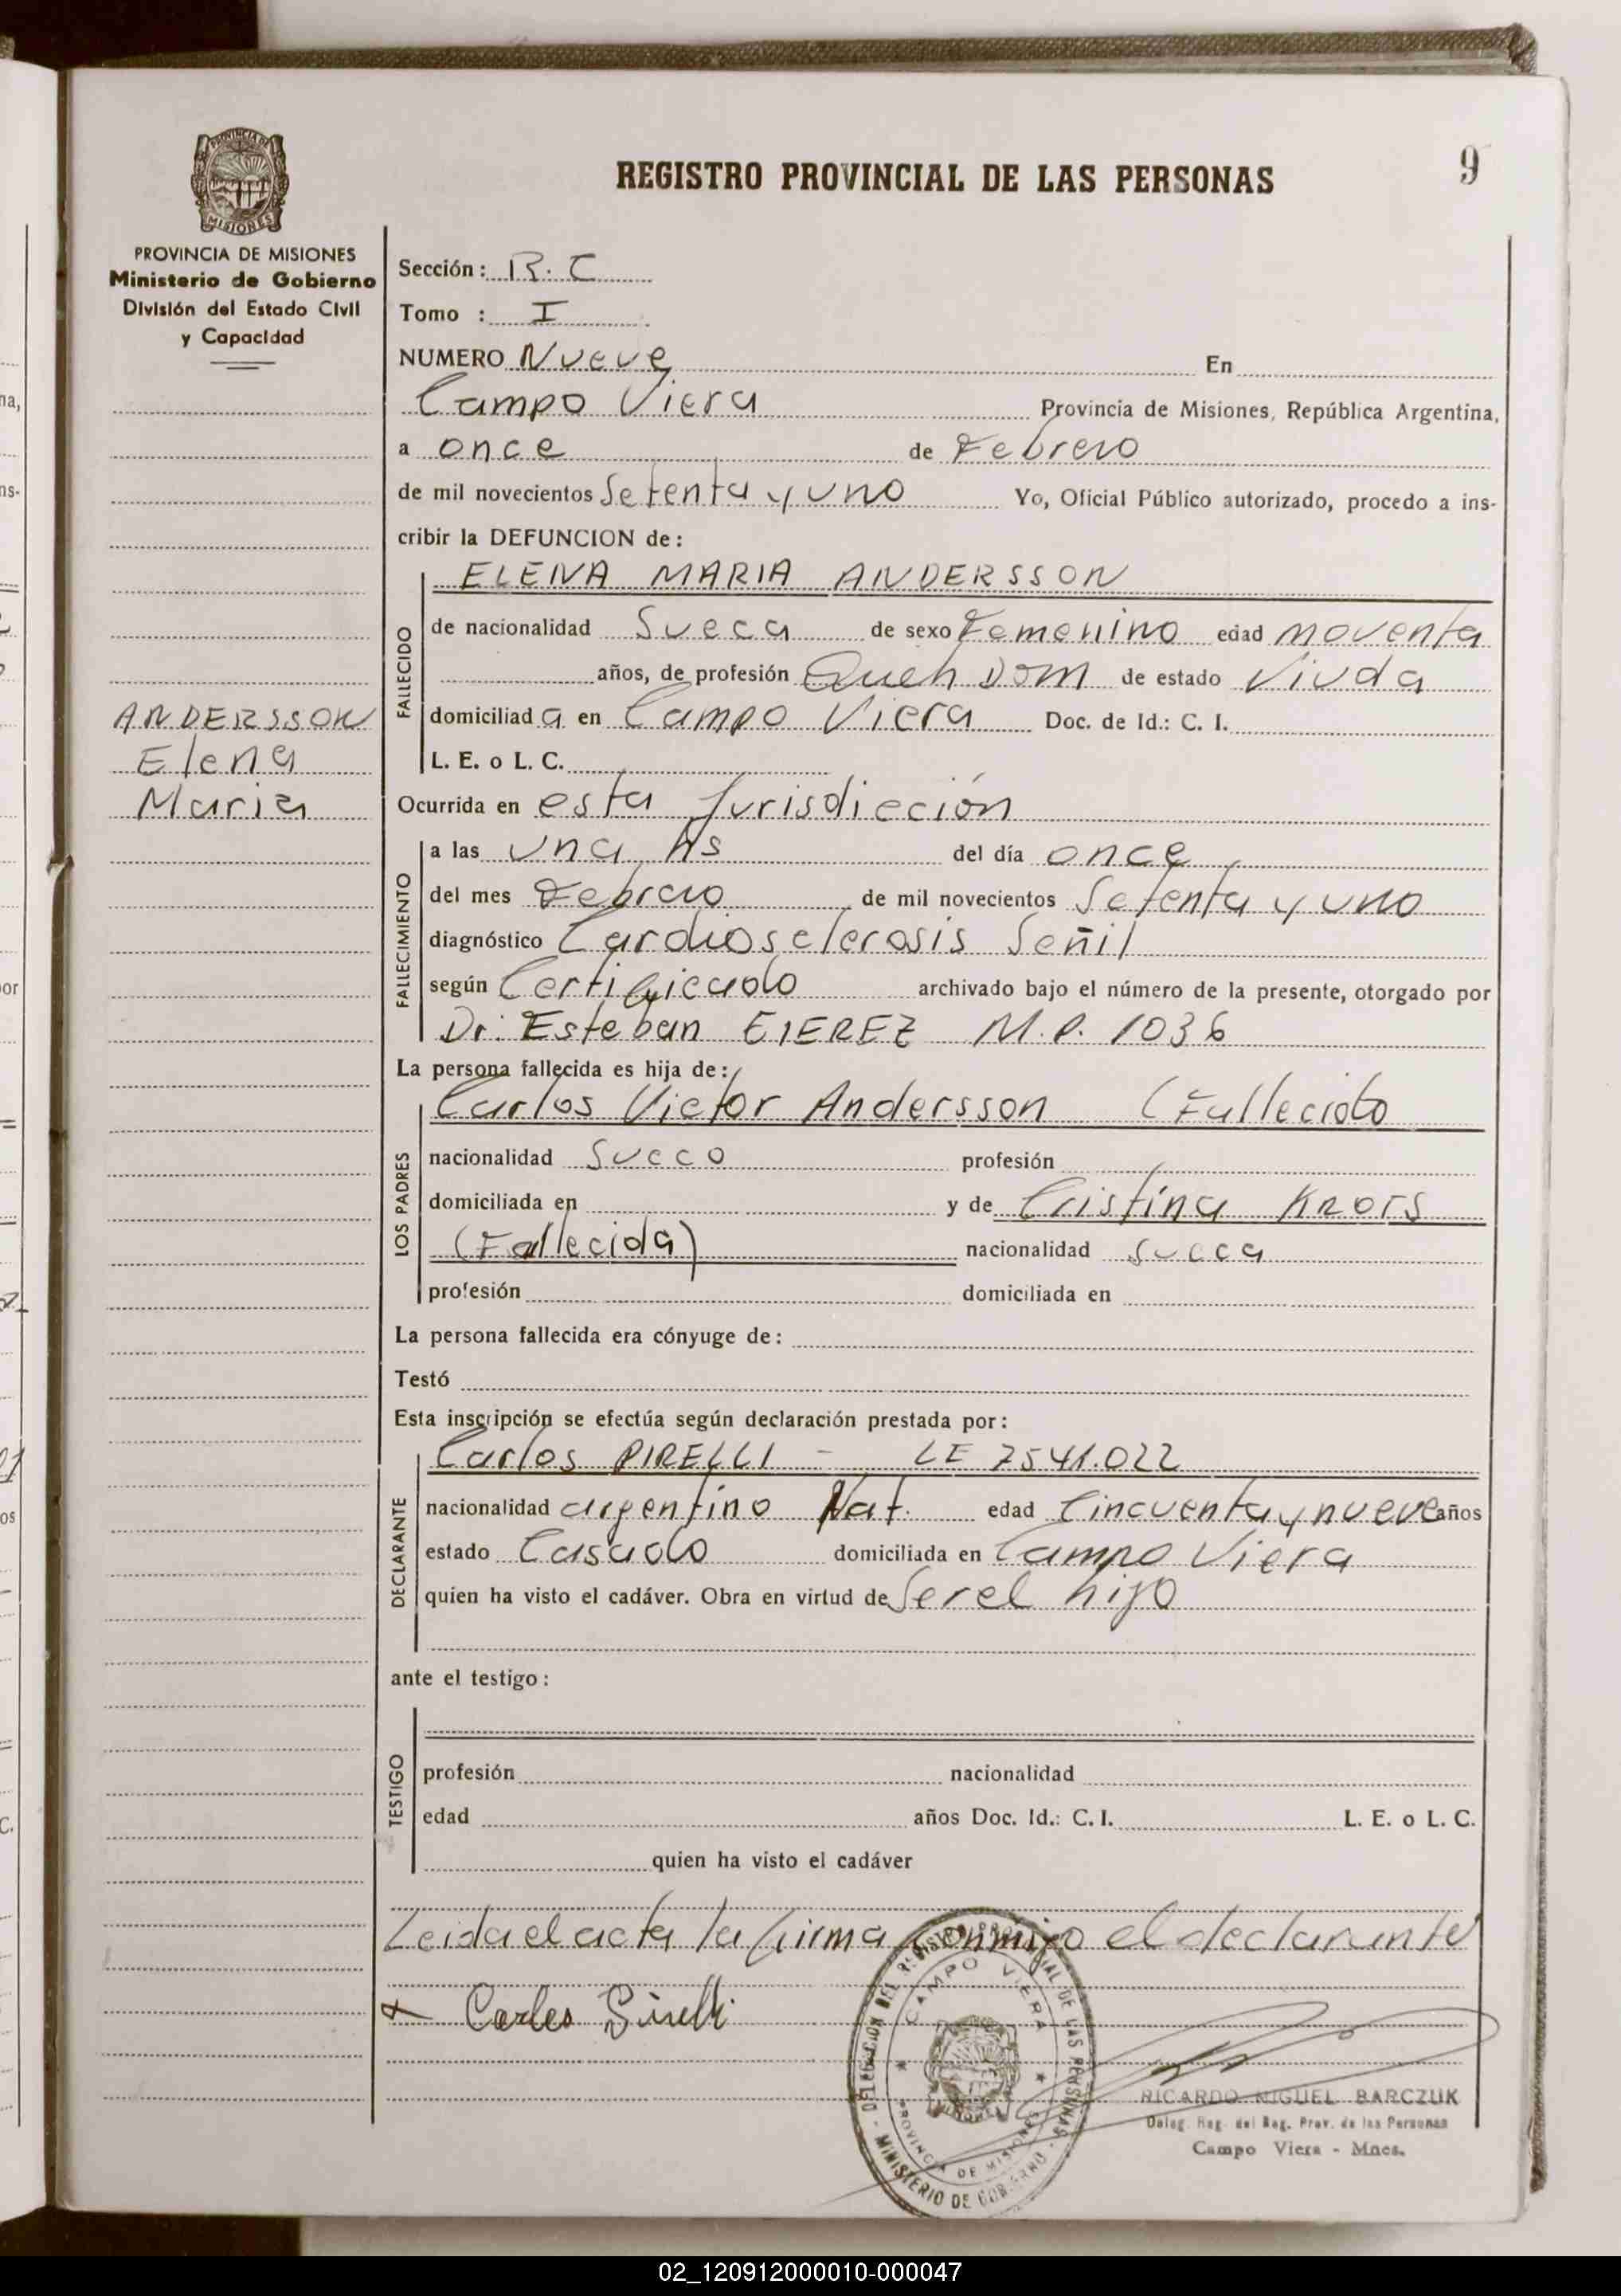 PROVINCIA DE
MISIONES
PROVINCIA DE MISIONES
Ministerio de Gobierno
División del Estado Civil
y Capacidad
REGISTRO PROVINCIAL DE LAS PERSONAS
9
Sección: R. C
Tomo : I
NUMERO Nueve En
Campo Viera Provincia de Misiones, República Argentina,
a once de Febrero
de mil novecientos Setenta y uno Yo, Oficial Público autorizado, procedo a ins-
cribir la DEFUNCION de:
FALLECIDO
ELENA MARIA ANDERSSON
de nacionalidad Sueca de sexo Femenino edad noventa
años, de profesión Queh Dom de estado Viuda
domiciliad a en Campo Viera Doc. de Id.: C. I.
L. E. o L. C.
ANDERSSON
Elena
Maria
Ocurrida en esta Jurisdicción
FALLECIMIENTO
a las una hs del día once
del mes Febrero de mil novecientos Setenta y uno
diagnóstico Cardiosclerosis Señil
según Certificado archivado bajo el número de la presente, otorgado por
Dr. Esteban EIEREZ M.P. 1036
La persona fallecida es hija de:
LOS PADRES
Carlos Victor Andersson (Fallecido
nacionalidad Sueco profesión
domiciliada en y de Cristina
(Fallecida) nacionalidad sueca
profesión domiciliada en
La persona fallecida era cónyuge de:
Testó
Esta inscripción se efectúa según declaración prestada por:
DECLARANTE
Carlos PIRELLI - LE 7541.022
nacionalidad argentino Nat. edad Cincuenta y nueve años
estado Casado domiciliada en Campo Viera
quien ha visto el cadáver. Obra en virtud de Ser el hijo
ante el testigo:
TESTIGO
profesión nacionalidad
edad años Doc. Id.: C. I. L. E. o L. C.
quien ha visto el cadáver
Leida el acta la firma conmigo el declarante
Carlos
DELEGACION DEL REGISTRO PROVINCIAL DE LAS PERSONAS - MINISTERIO DE GOBIERNO -
CAMPO VIERA
PROVINCIA DE MISIONES
RICARDO MIGUEL BARCZUK
Deleg. Reg. del Reg. Prov. de las Personas
Campo Viera - Mnes.
02_120912000010-000047